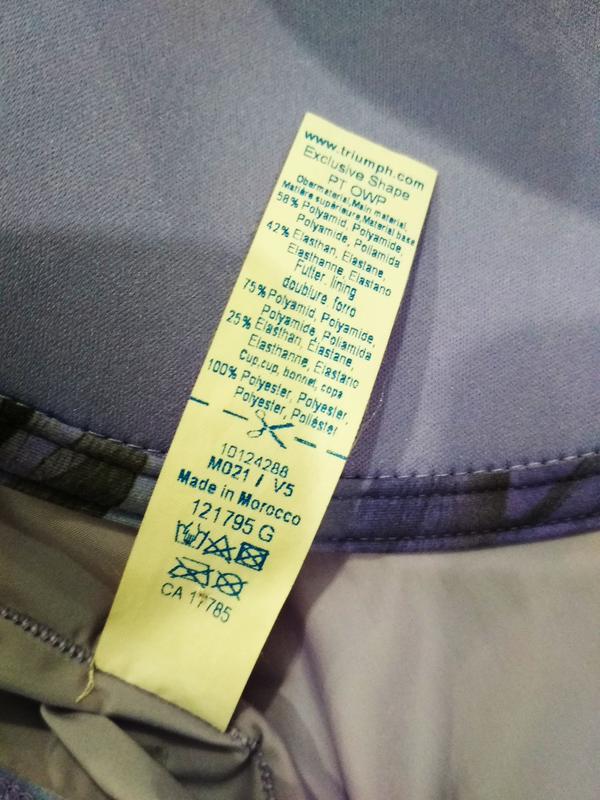 www.triumph.com
Exclusive Shape
PT OWP
Obermaterial,Main material,
Matière supérieure,Material base
58% Polyamid, Polyamide,
Polyamide, Poliamida
42% Elasthan, Elastane,
Elasthanne, Elastano
Futter, lining
doublure forro
75% Polyamid, Polyamide,
Polyamide, Poliamida
25% Elasthan, Elastane,
Elasthanne, Elastano
Cup,cup, bonnet, copa
100% Polyester, Polyester,
Polyester, Poliéster
10124288
M021 / V5
Made in Morocco
121795 G
CA 17785